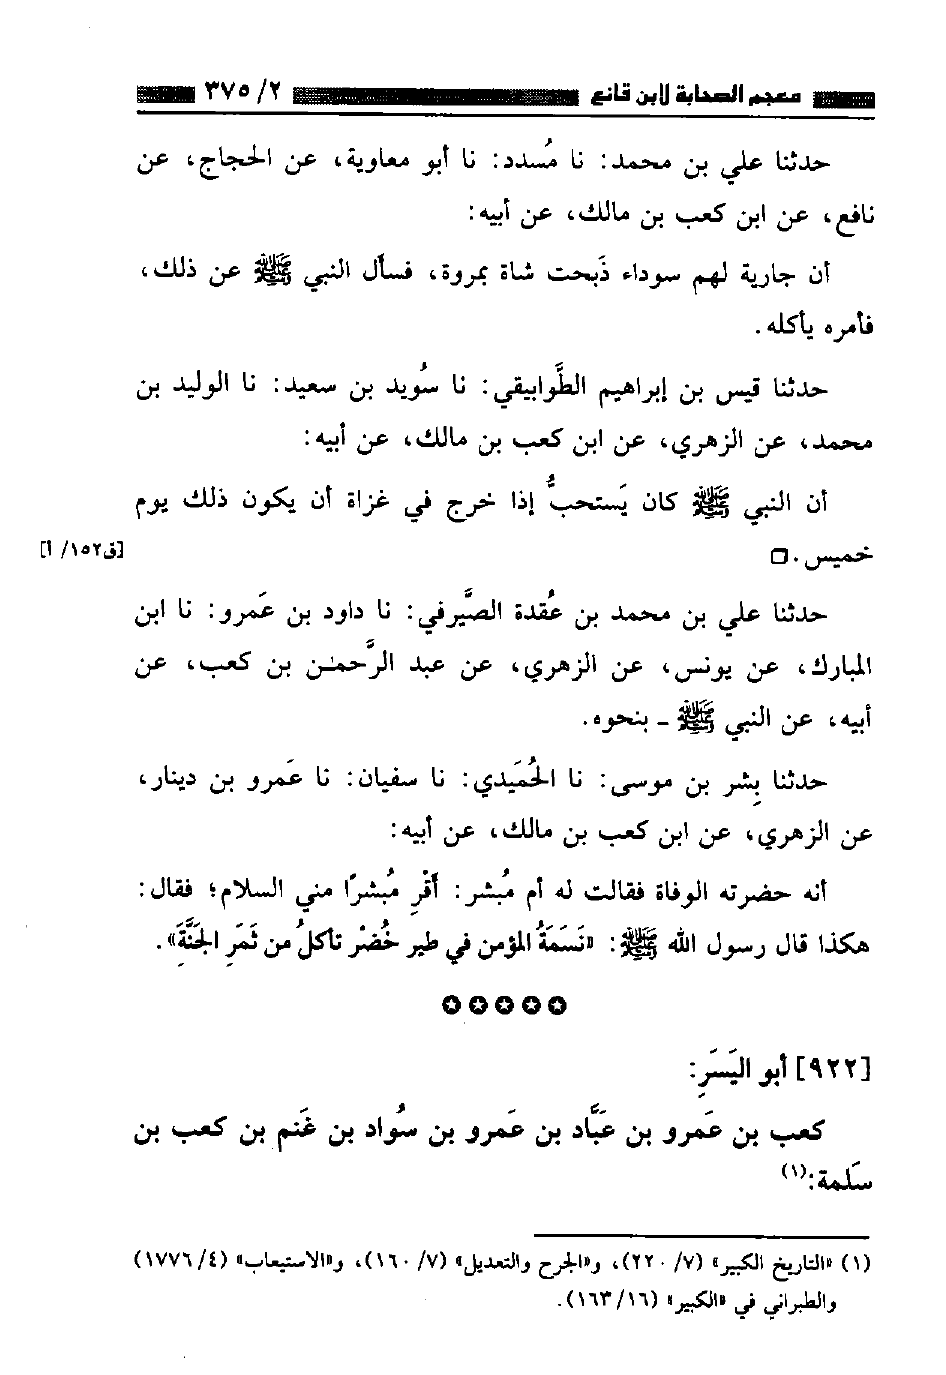 معجم الصحابة لابن قانع ٢/ ٣٧٥
حدثنا علي بن محمد: نا مُسدد: نا أبو معاوية، عن الحجاج، عن
نافع، عن ابن كعب بن مالك، عن أبيه:
أن جارية لهم سوداء ذَبحت شاة بمروة، فسأل النبي ﷺ عن ذلك،
فأمره يأكله.
حدثنا قيس بن إبراهيم الطَّوابيقي: نا سُويد بن سعيد: نا الوليد بن
محمد، عن الزهري، عن ابن كعب بن مالك، عن أبيه:
أن النبي ﷺ كان يَستحبُّ إذا خرج في غزاة أن يكون ذلك يوم
خميس. □ [ق١٥٢/ أ]
حدثنا علي بن محمد بن عُقدة الصَّيرفي: نا داود بن عَمرو: نا ابن
المبارك، عن يونس، عن الزهري، عن عبد الرَّحمٰن بن كعب، عن
أبيه، عن النبي ﷺ ـ بنحوه.
حدثنا بِشر بن موسى: نا الحُمَيدي: نا سفيان: نا عَمرو بن دينار،
عن الزهري، عن ابن كعب بن مالك، عن أبيه:
أنه حضرته الوفاة فقالت له أم مُبشر: أَقْرِ مُبشرًا مني السلام؛ فقال:
هكذا قال رسول الله ﷺ: «نَسَمَةُ المؤمن في طير خُضْر تأكلُ من ثَمَرِ الجَنَّةِ».
✪✪✪✪✪
[٩٢٢] أبو اليَسَرِ:
كعب بن عَمرو بن عبَّاد بن عَمرو بن سُواد بن غَنم بن كعب بن
سَلمة:(١)
(١) «التاريخ الكبير» (٧/ ٢٢٠)، و«الجرح والتعديل» (٧/ ١٦٠)، و«الاستيعاب» (٤/ ١٧٧٦)
والطبراني في «الكبير» (١٦/ ١٦٣).